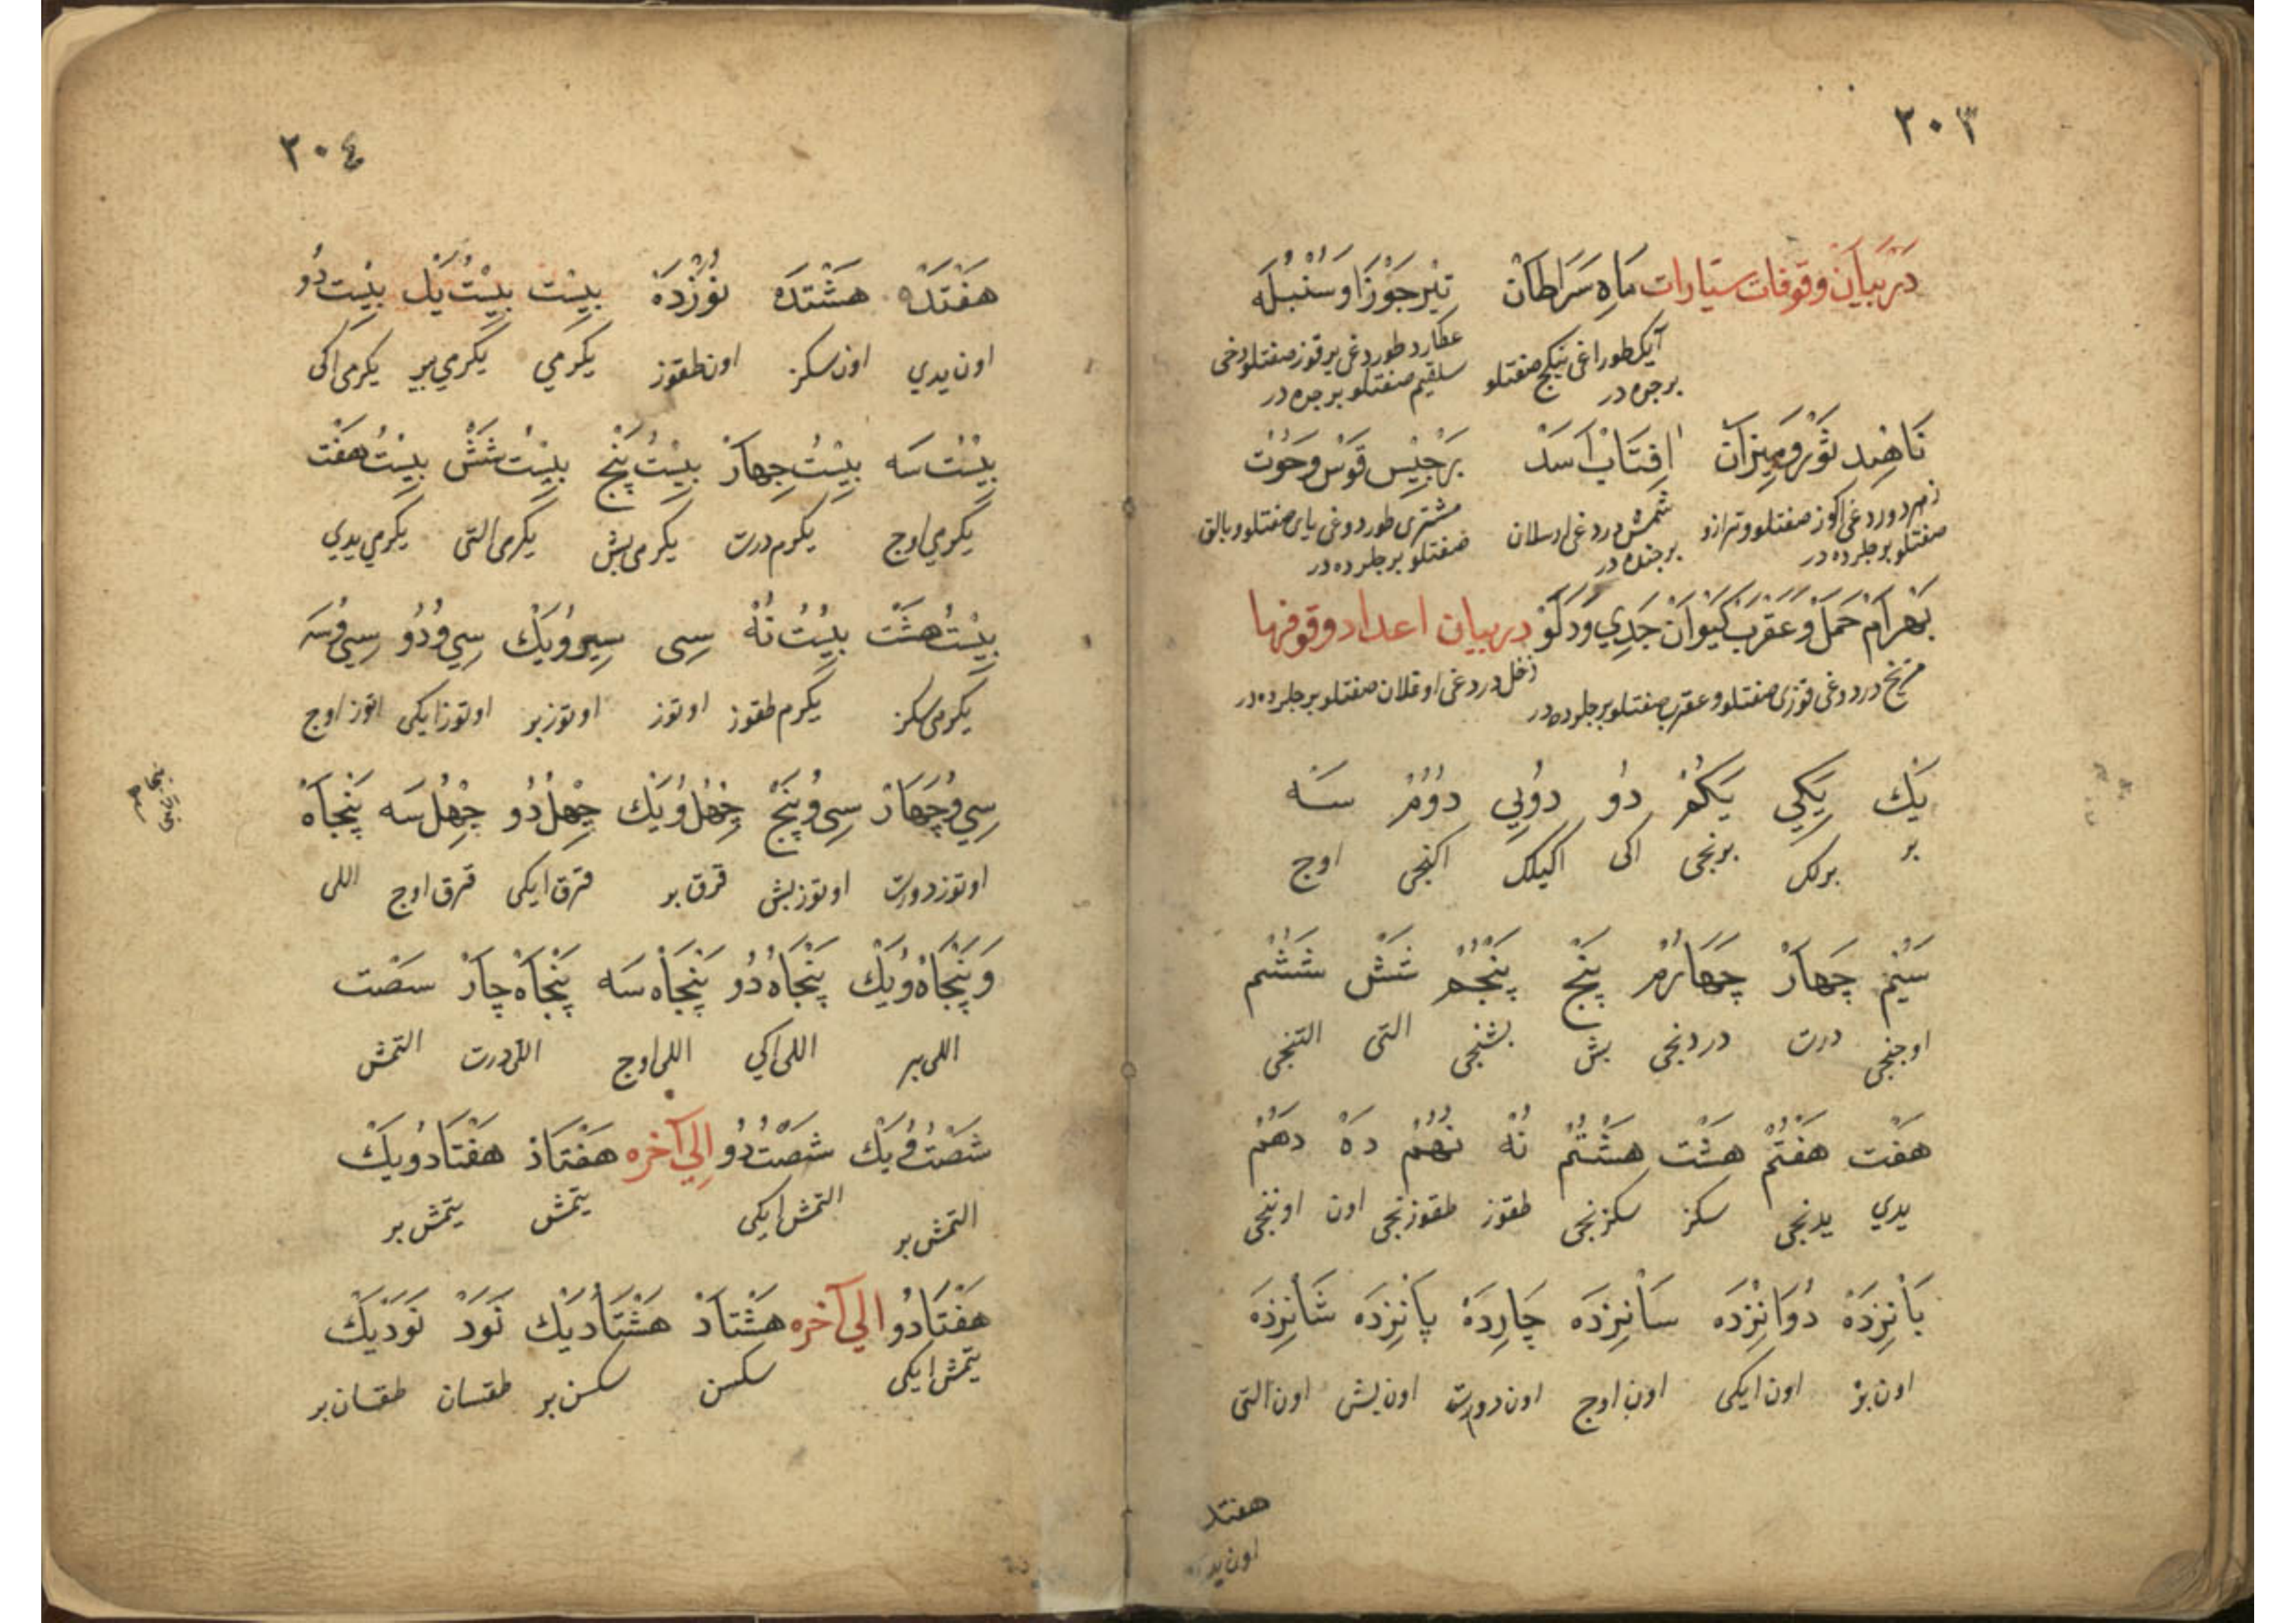 ٢٠٣
در بیان وقوفات ستیارات ماه سرطان تیر جوزا و سنبله
آیک طوراغی ینکج صفتلو عطارد طوردغی یر قوز صفتلو دخی
برجده در سلقیم صفتلو برجده در
ناهید ثور و میزان افتاب اسد برجیس قوس و حوت
زهره دوردغی اکوز صفتلو و ترازو شمش دردغی ارسلان مشتری طوردوغی یای صفتلو و بالق
صفتلو برجلرده در برجنده در صفتلو برجلرده در
بهرام حمل و عقرب کیوان جدي و دلو در بیان اعداد وقوفرها
مریخ درددوغی قوزی صفتلو و عقرب صفتلو برجلرده در زحل دردغی اوغلان صفتلو برجلرده در
یک یکي یکم دو دوبي دووم سه
بر برلك برنجی اکی اکیلك اکنجی اوج
سیم چهار چهارم پنج پنجم شش ششم
اوجنجی درت دردنجی بش بشنجی التی التنجی
هفت هفتم هشت هشتم نه نهم ده دهم
یدي یدنجی سکز سکزنجی طقوز طقوزنجی اون اوننجی
یانزده دوانزده سانزده چارده پانزده شانزده
اون بر اون ایکی اون اوج اون دورت اون بش اون التی
هفتد
اون ید
٢٠٤
هفتده هشتده نوزده بیست بیست یك بیست دو
اون یدي اون سکز اون طقوز یکرمي یکرمي بیر یکرمی اکی
بیست سه بیست جهار بیست پنج بیست شش بیست هفت
یکرمي اوج یکرم درت یکرمی بش یکرمی التی یکرمي یدي
بیست هشت بیست نه سی سی و یك سي و دو سي و سه
یکرمی سکز یکرم طقوز اوتوز اوتوز بر اوتوز ایکی اتوز اوج
سي و چهار سی و پنج چهل و یك چهل دو چهل سه پنجاه
اوتوز دورت اوتوز بش قرق بر قرق ایکی قرق اوج اللی
و پنجاه و یك پنجاه دو پنجاه سه پنجاه چار سصت
اللی بیر اللی اکي اللی اوج اللی درت التمش
شصت و یك شصت دو الي آخره هفتاد هفتاد و یك
التمش بر التمش ایکی یتمش یتمش بر
هفتاد دو الی آخره هشتاد هشتاد یك نود نود یك
یتمش ایکی سکسن سکسن بر طقسان طقسان بر